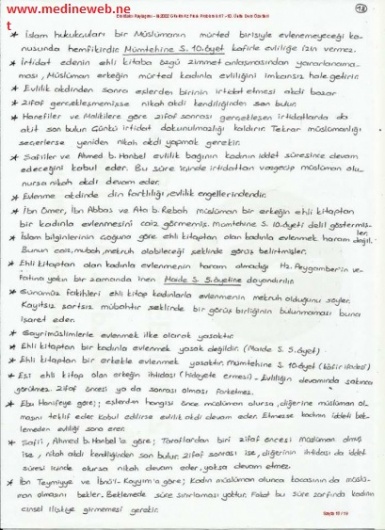 www.medineweb.ne
t
* İslam hukukcuları bir Müslümanın mürted birisiyle evlenemeyeceği ko
nusunda hemfikirdir. Mümtehine S. 10.ayet kafirle evliliğe izin vermez.
* İrtidat edenin ehli kitaba özgü zimmet anlaşmasından yararlanama-
ması, Müslüman erkeğin mürted kadınla evliliğini imkansız hale getirir.
* Evlilik akdinden sonra eşlerden birinin irtidat etmesi akdi bozar
* Zifaf gerçekleşmemişse nikah akdi kendiliğinden son bulur.
* Hanefiler ve Malikilere göre zifaf sonrası gerçekleşen irtidatlarda da
akit son bulur. Çünkü irtidat dokunulmazlığı kaldırır. Tekrar müslümanlığı
seçerlerse yeniden nikah akdi yapmak gerekir.
* Şafiiler ve Ahmed b. Hanbel evlilik bağının kadının iddet süresince devam
edeceğini kabul eder. Bu süre içinde irtidattan vazgeçip müslüman olu-
nursa nikah akdi devam eder.
* Evlenme akdinde din farklılığı, evlilik engellerindendir.
* İbn Ömer, İbn Abbas ve Ata b. Rebah müslüman bir erkeğin ehli kitaptan
bir kadınla evlenmesini caiz görmemiş. Mümtehine S. 10.ayeti delil göstermiş
ler.
* İslam bilginlerinin çoğuna göre ehli kitaptan olan kadınla evlenmek haram değil.
Bunun caiz, mubah, mekruh olabileceği şeklinde görüş belirtmişler.
* Ehli kitaptan olan kadınla evlenmenin haram olmadığı Hz. Peygamber'in ve-
fatına yakın bir zamanda inen Maide S. 5.ayetine dayandırılır.
* Günümüz fakihleri ehli kitap kadınlarla evlenmenin mekruh olduğunu söyler.
Kayıtsız şartsız mübahtır şeklinde bir görüş birliğinin bulunmaması buna
işaret eder.
* Gayrimüslimlerle evlenmek ilke olarak yasaktır.
* Ehli kitaptan bir kadınla evlenmek yasak değildir. (Maide S. 5.ayet)
* Ehli kitaptan bir erkekle evlenmek yasaktır. Mümtehine S. 10.ayet
* Eşi ehli kitap olan erkeğin ihtidası (hidayete ermesi) - Evliliğin devamında sakınca
görülmez. Zifaf öncesi ya da sonrası olması farketmez.
* Ebu Hanife'ye göre; eşlerden hangisi önce müslüman olursa, diğerine müslüman ol-
ması teklif eder. Kabul edilirse evlilik akdi devam eder. Etmezse kadının iddeti bek-
lemeden evliliği sona erer.
* Şafii, Ahmed b. Hanbel'e göre; Taraflardan biri zifaf öncesi müslüman olmuş
ise, nikah akdi kendiliğinden son bulur. Zifaf sonrası ise, diğerinin ihtidası da iddet
süresi içinde olursa nikah devam eder, yoksa devam etmez.
* İbn Teymiyye ve İbnü'l-Kayyım'a göre; Kadın müslüman olunca kocasının da müslü-
man olmasını bekler. Beklemede süre sınırlaması yoktur. Fakat bu süre zarfında kadının
cinsel ilişkiye girmemesi gerekir.